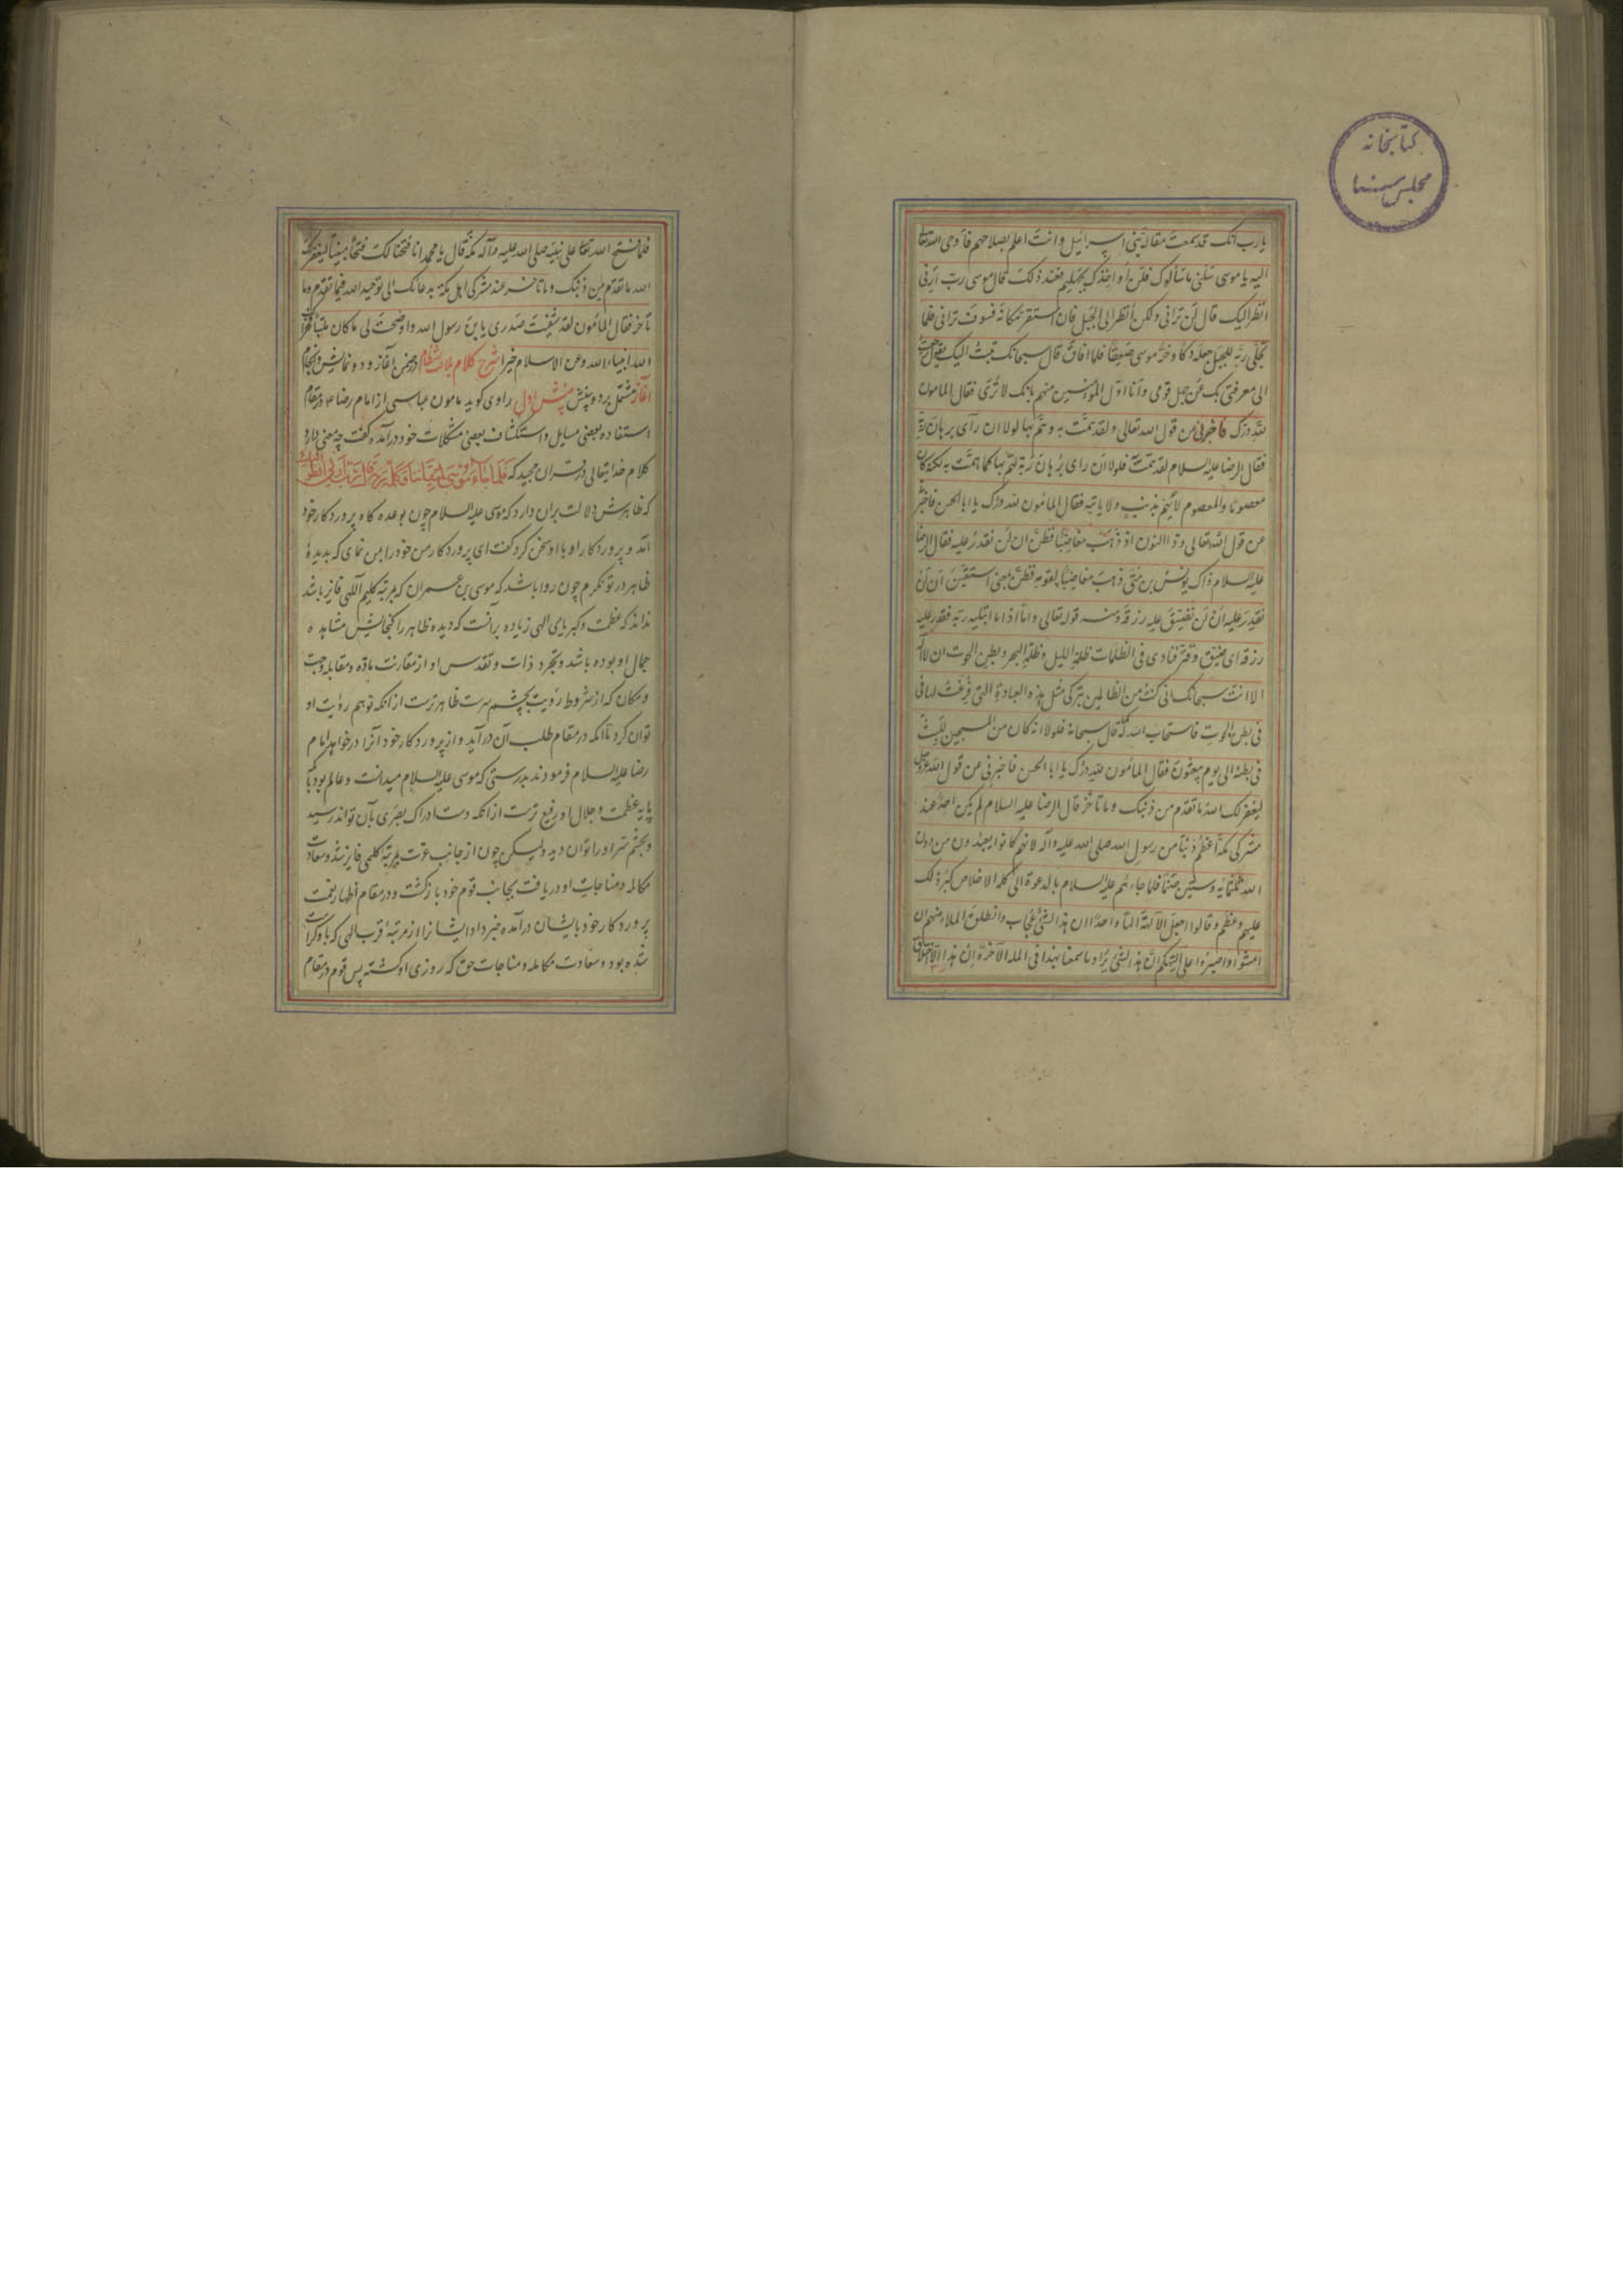 کتابخانه
مجلس سنا
یا رب انک قد سمعت مقالة بنی اسرائیل و انت اعلم بصلاحهم فاوحی الله تعالی
الیه یا موسی سلنی ما سألوک فلن اواخذک بجهلهم فعند ذلک قال موسی رب ارنی
انظر الیک قال لن ترانی و لکن انظر الی الجبل فان استقر مکانه فسوف ترانی فلما
تجلی ربه للجبل جعله دکا و خر موسی صعقا فلما افاق قال سبحانک تبت الیک یقول رجعت
الی معرفتی بک عن جهل قومی و انا اول المؤمنین منهم بانک لا تری فقال المامون
لله درک فاخبرنی عن قول الله تعالی و لقد همت به و هم بها لولا ان رآی برهان ربه
فقال الرضا علیه السلام لقد همت به فلولا ان رای برهان ربه لهم بها کما همت به لکنه کان
معصوما و المعصوم لا یهم بذنب و لا یاتیه فقال المامون لله درک یا ابا الحسن فاخبرنی
عن قول الله تعالی و ذا النون اذ ذهب مغاضبا فظن ان لن نقدر علیه فقال الرضا
علیه السلام ذاک یونس بن متی ذهب مغاضبا لقومه فظن بمعنی استیقن ان لن
نقدر علیه ان لن نضیق علیه رزقه و منه قوله تعالی و اما اذا ما ابتلیه ربه فقدر علیه
رزقه ای ضیق و قتر فنادی فی الظلمات ظلمة اللیل و ظلمة البحر و بطن الحوت ان لا اله
الا انت سبحانک انی کنت من الظالمین بترکی مثل هذه العبادة التی فرغت لها فی
فی بطن الحوت فاستجاب الله له قال سبحانه فلولا انه کان من المسبحین للبث
فی بطنه الی یوم یبعثون فقال المامون لله درک یا ابا الحسن فاخبرنی عن قول الله عز و جل
لیغفر لک الله ما تقدم من ذنبک و ما تأخر قال الرضا علیه السلام لم یکن احد عند
مشرکی مکة اعظم ذنبا من رسول الله صلی الله علیه و آله لانهم کانوا یعبدون من دون
الله ثلثمائه و ستین صنما فلما جاءهم علیه السلام بالدعوة الی کلمة الاخلاص کبر ذلک
علیهم و عظم و قالوا اجعل الآلهة الها واحدا ان هذا لشئ عجاب و انطلق الملاء منهم ان
امشوا و اصبروا علی الهتکم ان هذا لشئ یراد ما سمعنا بهذا فی الملة الآخرة ان هذا الا اختلاق
فلما فتح الله تعالی علی نبیه صلی الله علیه و آله مکة قال یا محمد انا فتحنا لک فتحا مبینا لیغفر لک
الله ما تقدم من ذنبک و ما تاخر عند مشرکی اهل مکة بدعائک الی توحید الله فیما تقدم و ما
تأخر فقال المأمون لقد شفیت صدری یابن رسول الله و اوضحت لی ما کان ملتبسا
الله انبیاء الله و عن الاسلام خیرا شرح کلام بلاغت نظام در ضمن آغاز و دو نمایش و انجام
آغاز مشتمل بر دو بینش بینش اول راوی کوید مامون عباسی از امام رضا ع در مقام
استفاده بعضی مسایل و استکشاف بعضی مشکلات خود درآمد و گفت چه معنی دارد
کلام خدایتعالی در قران مجید که فلما جاء موسی لمیقاتنا و کلمه ربه قال رب ارنی انظر الیک
که ظاهرش دلالت بران دارد که موسی علیه السلام چون بوعده کاه پروردکار خود
آمد و پروردکار او با او سخن کرد گفت ای پروردکار من خود را بمن نمای که بدیدهٔ
ظاهر در تو نکرم چون روا باشد که موسی بن عمران که بمرتبهٔ کلیم اللهی فایز باشد
نداند که عظمت و کبریای الهی زیاده بر آنست که دیده ظاهر را کنجایش مشاهده
جمال او بوده باشد و تجرد ذات و تقدس او از مقارنت ماده و مقابله و جهت
و مکان که از شروط رؤیت بچشم سرست ظاهرترست از آنکه توهم رؤیت او
توان کرد تا آنکه در مقام طلب آن درآید و از پروردکار خود آنرا درخواهد امام
رضا علیه السلام فرمودند بدرستی که موسی علیه السلام میدانست و عالم بود بآنکه
پایه عظمت و جلال او رفیع ترست از آنکه دست ادراک بصری بآن تواند رسید
و بچشم سر او را توان دید ولیکن چون از جانب عزت بمرتبهٔ کلیمی فایز شد و سعادت
مکالمه و مناجات او دریافت بجانب قوم خود بازگشت و در مقام اظهار نعمت
پروردکار خود بایشان درآمده خبر داد ایشان را از مرتبهٔ قرب الهی که باو کرامت
شده بود و سعادت مکالمه و مناجات حق که روزی او کشته پس قوم در مقام